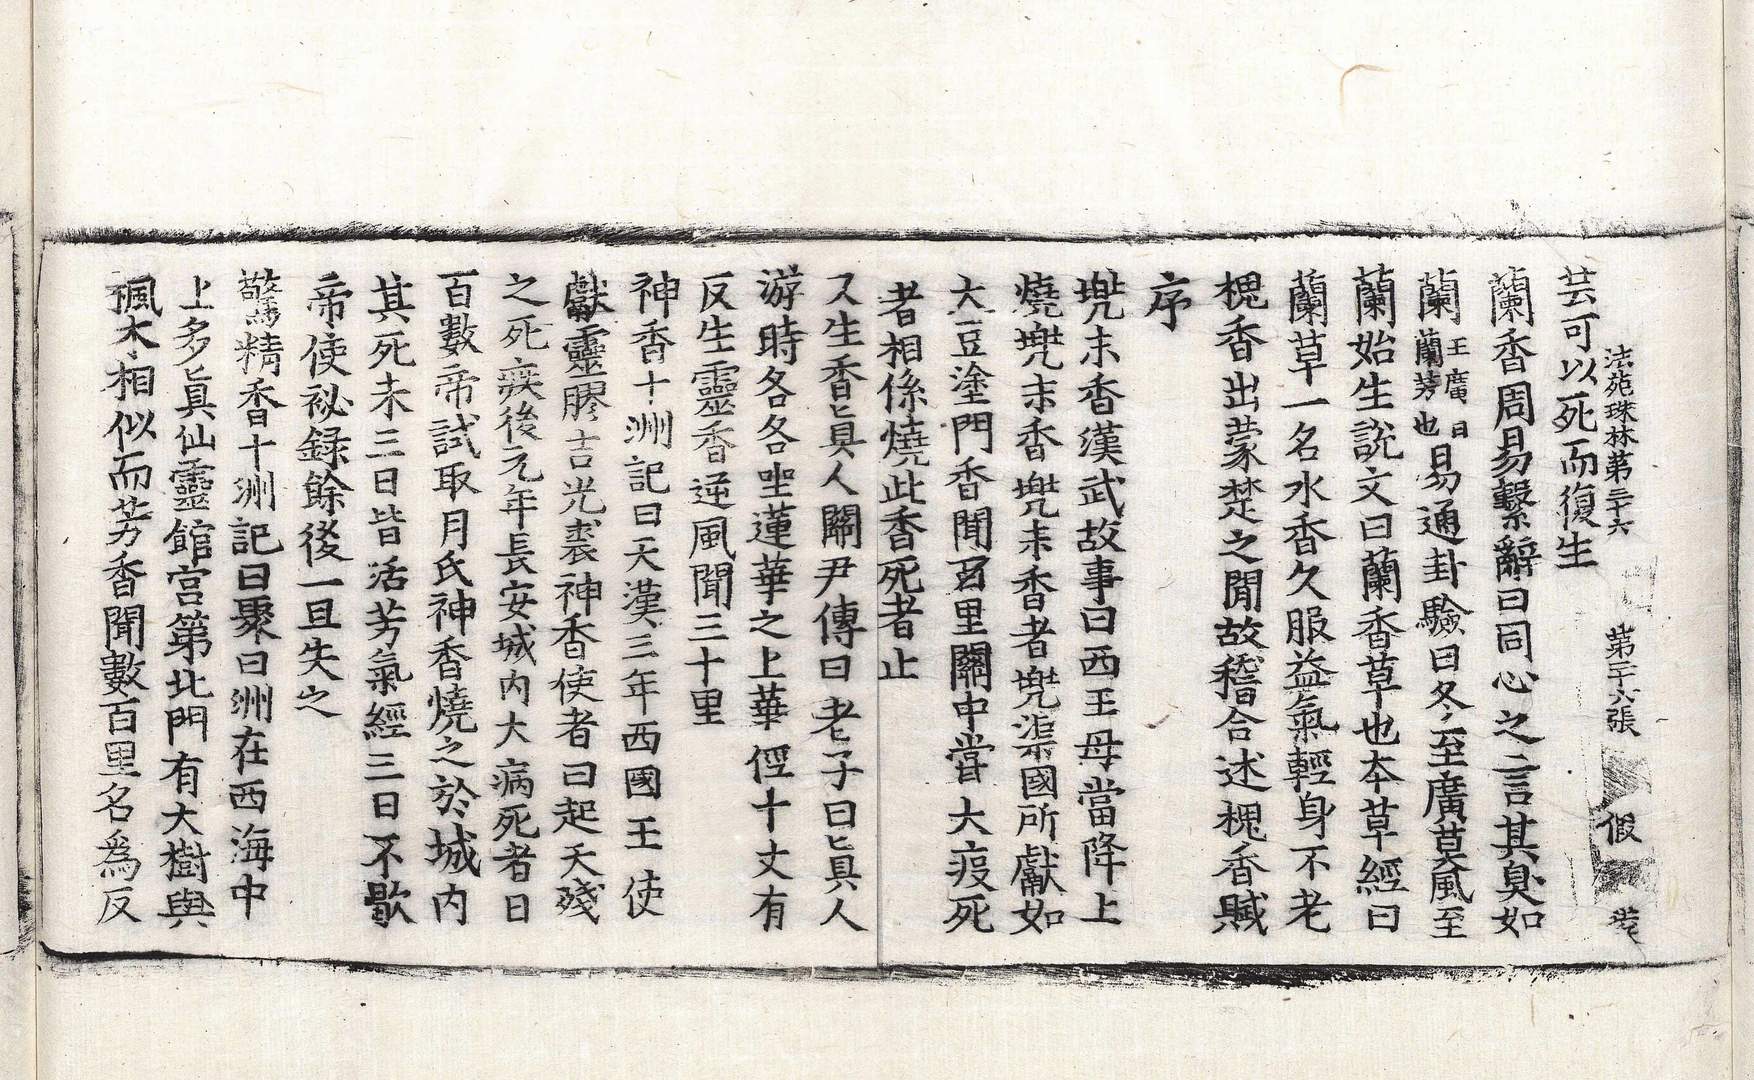 法苑珠林第三十六　第二十六張　假
芸可以死而復生
蘭香周易繫辭曰同心之言其臭如
蘭王廣曰蘭芳也易通卦驗曰冬至廣莫風至
蘭始生說文曰蘭香草也本草經曰
蘭草一名水香久服益氣輕身不老
槐香出蒙楚之閒故稽合述槐香賦
序
兠末香漢武故事曰西王母當降上
燒兠末香兠末香者兠渠國所獻如
大豆塗門香聞百里關中當大疫死
者相係燒此香死者止
又生香眞人關尹傳曰老子曰眞人
游時各各坐蓮華之上華徑十丈有
反生靈香逆風聞三十里
神香十洲記曰天漢三年西國王使
獻靈膠吉光裘神香使者曰起夭殘
之死疾後元年長安城内大病死者日
百數帝試取月氏神香燒之於城内
其死未三日皆活芳氣經三日不歇
帝使祕録餘後一旦失之
驚精香十洲記曰聚曰洲在西海中
上多眞仙靈館宫第北門有大樹與
楓木相似而芳香聞數百里名爲反